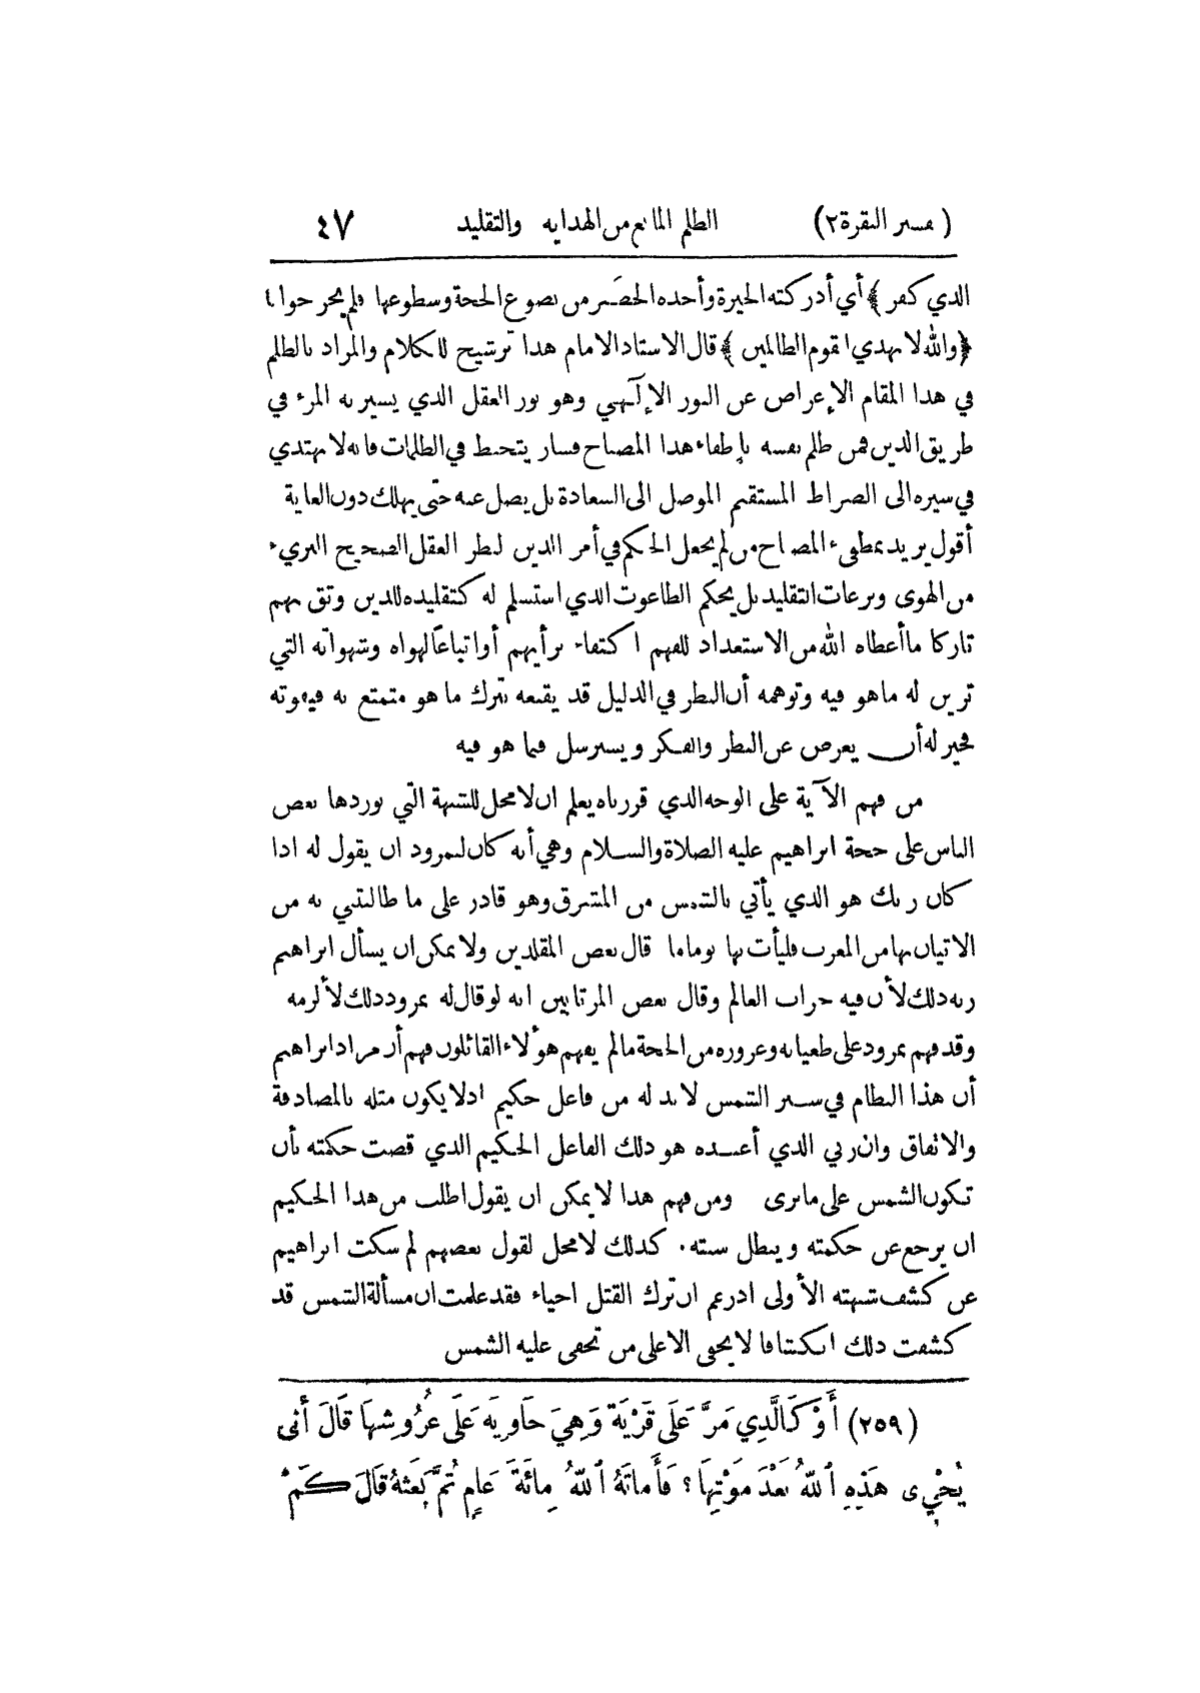 ( تفسير البقرة ٢ ) الظلم المانع من الهداية والتقليد ٤٧
الذي كفر ﴾ أي أدركته الحيرة وأخذه الحصر من نصوع الحجة وسطوعها فلم يحر جوابا
﴿ والله لا يهدي القوم الظالمين ﴾ قال الاستاذ الامام هذا ترشيح للكلام والمراد بالظلم
في هذا المقام الإعراض عن النور الإلهي وهو نور العقل الذي يسير به المرء في
طريق الدين فمن ظلم نفسه بإطفاء هذا المصباح فسار يتخبط في الظلمات فانه لا يهتدي
في سيره الى الصراط المستقيم الموصل الى السعادة بل يضل عنه حتى يهلك دون الغاية
أقول يريد بمطفىء المصباح من لم يجعل الحكم في أمر الدين لنظر العقل الصحيح البريء
من الهوى ونزعات التقليد بل يحكم الطاغوت الذي استسلم له كتقليده للذين وثق بهم
تاركا ما أعطاه الله من الاستعداد للفهم اكتفاء برأيهم أو اتباعًا لهواه وشهواته التي
تزين له ما هو فيه وتوهمه أن النظر في الدليل قد يقنعه بترك ما هو متمتع به فيفوته
فخير له أن يعرض عن النظر والفكر ويسترسل فيما هو فيه
من فهم الآية على الوجه الذي قررناه يعلم ان لا محل للشبهة التي يوردها بعض
الناس على حجة ابراهيم عليه الصلاة والسلام وهي أنه كان لنمرود ان يقول له اذا
كان ربك هو الذي يأتي بالشمس من المشرق وهو قادر على ما طالبتني به من
الاتيان بها من المغرب فليأت بها يوما ما قال بعض المقلدين ولا يمكن ان يسأل ابراهيم
ربه ذلك لأن فيه خراب العالم وقال بعض المرتابين انه لو قال له نمرود ذلك لألزمه
وقد فهم نمرود على طغيانه وغروره من الحجة ما لم يفهم هؤلاء القائلون فهم أن مراد ابراهيم
أن هذا النظام في سير الشمس لا بد له من فاعل حكيم اذ لا يكون مثله بالمصادفة
والاتفاق وان ربي الذي أعبده هو ذلك الفاعل الحكيم الذي قضت حكمته بأن
تكون الشمس على ما نرى ومن فهم هذا لا يمكن ان يقول اطلب من هذا الحكيم
ان يرجع عن حكمته ويبطل سنته. كذلك لا محل لقول بعضهم لم سكت ابراهيم
عن كشف شبهته الأولى اذ زعم ان ترك القتل احياء فقد علمت ان مسألة الشمس قد
كشفت ذلك انكشافا لا يخفى الا على من تخفى عليه الشمس
( ٢٥٩ ) أَوْ كَالَّذِي مَرَّ عَلَى قَرْيَةٍ وَهِيَ خَاوِيَةٌ عَلَى عُرُوشِهَا قَالَ أَنَّى
يُحْيِي هَذِهِ ٱللهُ بَعْدَ مَوْتِهَا؟ فَأَمَاتَهُ ٱللهُ مِائَةَ عَامٍ ثُمَّ بَعَثَهُ قَالَ كَمْ